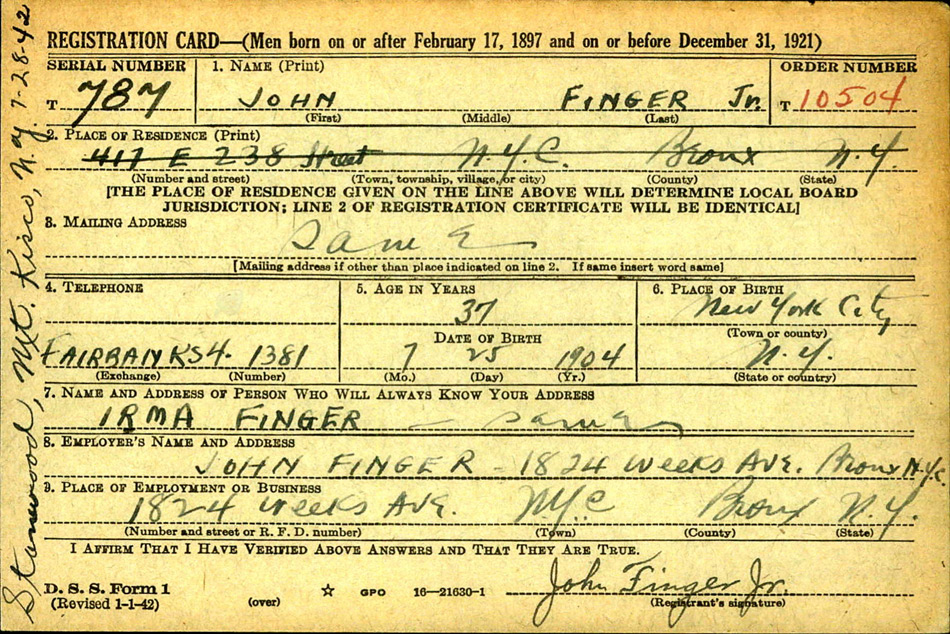 REGISTRATION CARD—(Men born on or after February 17, 1897 and on or before December 31, 1921)
SERIAL NUMBER
1. NAME (Print)
ORDER NUMBER
T 787
JOHN FINGER Jr.
T 10504
(First) (Middle) (Last)
2. PLACE OF RESIDENCE (Print)
417 E 238 Street N.Y.C. Bronx N.Y
(Number and street) (Town, township, village, or city) (County) (State)
[THE PLACE OF RESIDENCE GIVEN ON THE LINE ABOVE WILL DETERMINE LOCAL BOARD
JURISDICTION; LINE 2 OF REGISTRATION CERTIFICATE WILL BE IDENTICAL]
3. MAILING ADDRESS
Same
[Mailing address if other than place indicated on line 2. If same insert word same]
4. TELEPHONE
5. AGE IN YEARS
6. PLACE OF BIRTH
37
New York City
DATE OF BIRTH
(Town or county)
FAIRBANKS4. 1381
7 25 1904
N.Y.
(Exchange) (Number)
(Mo.) (Day) (Yr.)
(State or country)
7. NAME AND ADDRESS OF PERSON WHO WILL ALWAYS KNOW YOUR ADDRESS
IRMA FINGER — Same
8. EMPLOYER'S NAME AND ADDRESS
JOHN FINGER - 1824 WEEKS AVE. Bronx N.Y.
9. PLACE OF EMPLOYMENT OR BUSINESS
1824 WEEKS AVE. NYC Bronx N.Y.
(Number and street or R. F. D. number) (Town) (County) (State)
I AFFIRM THAT I HAVE VERIFIED ABOVE ANSWERS AND THAT THEY ARE TRUE.
John Finger Jr.
D. S. S. Form 1
(Revised 1-1-42) (over) ☆ GPO 16—21630-1 (Registrant's signature)
Stonewood, Mt. Kisco, N.Y. 7-28-42